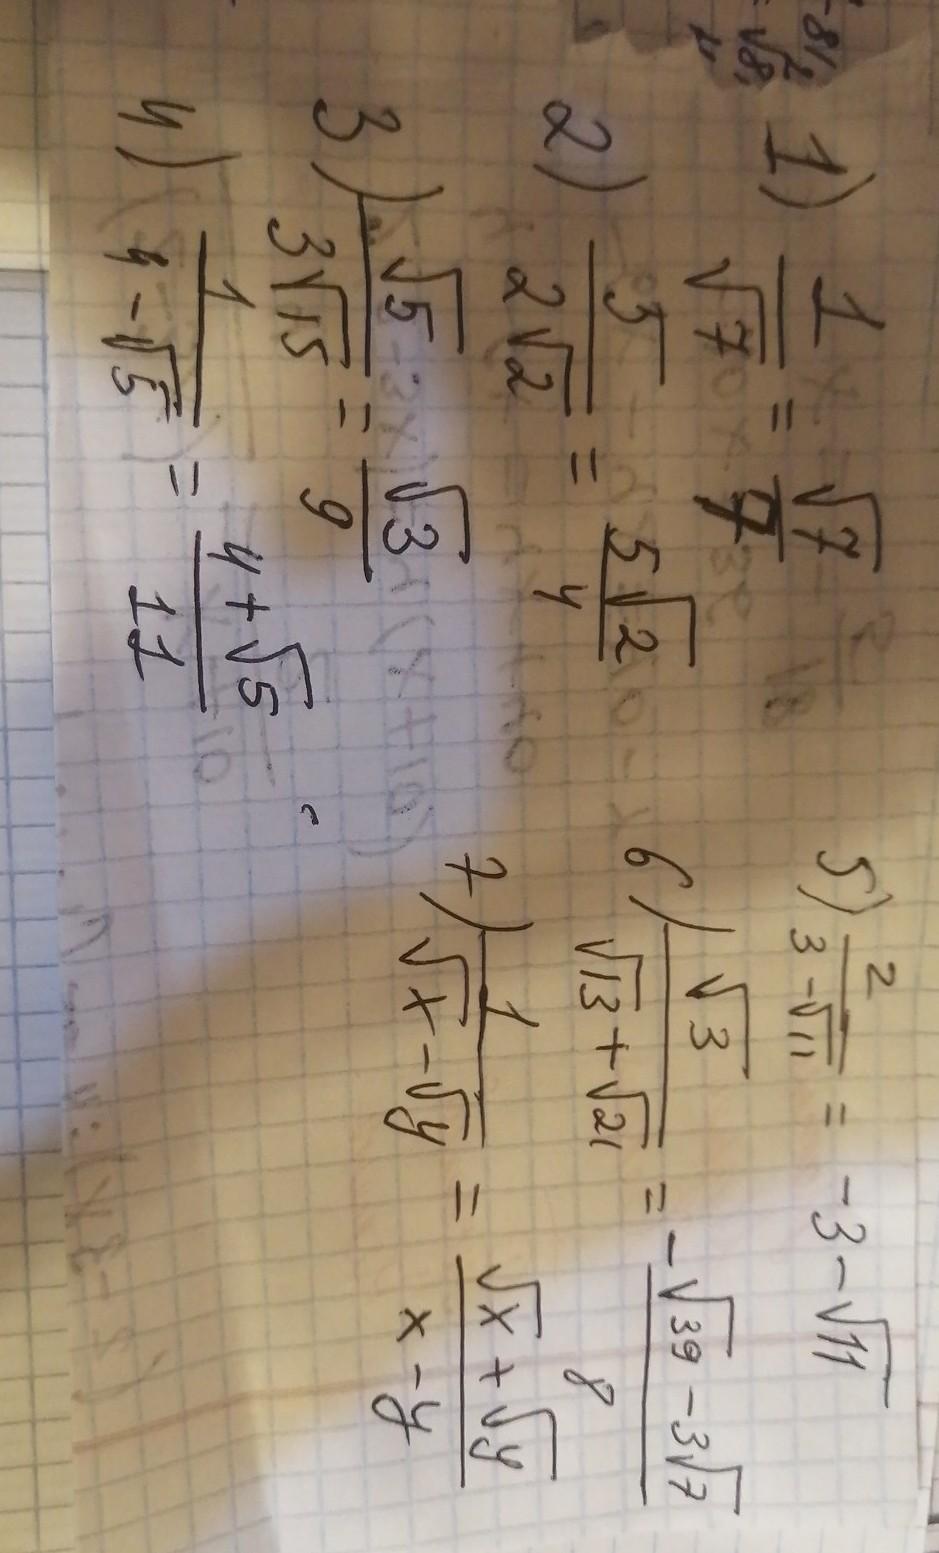 1) 1/√7 = √7/7
2) 5/2√2 = 5√2/4
3) √5/3√15 = √3/9
4) 1/4-√5 = 4+√5/11
5) 2/3-√11 = -3-√11
6) √3/√13+√21 = -√39-3√7/8
7) 1/√x-√y = √x+√y/x-y